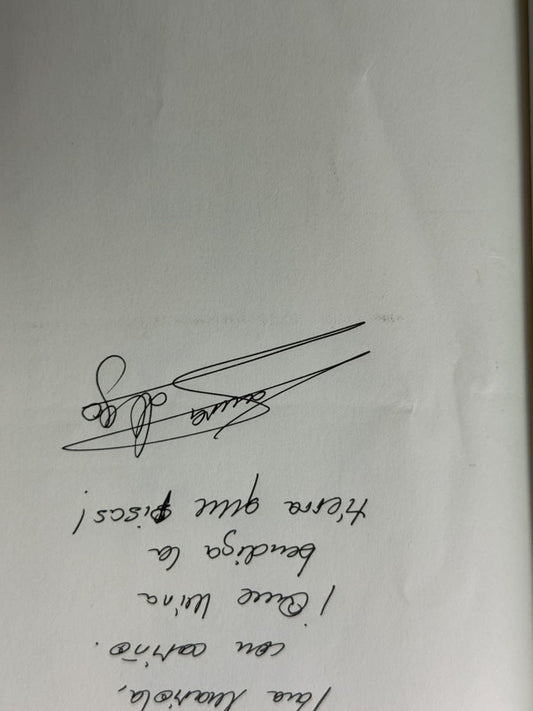 Para Mariola,
con cariño.
¡Que
bendiga la
tierra que pisas!